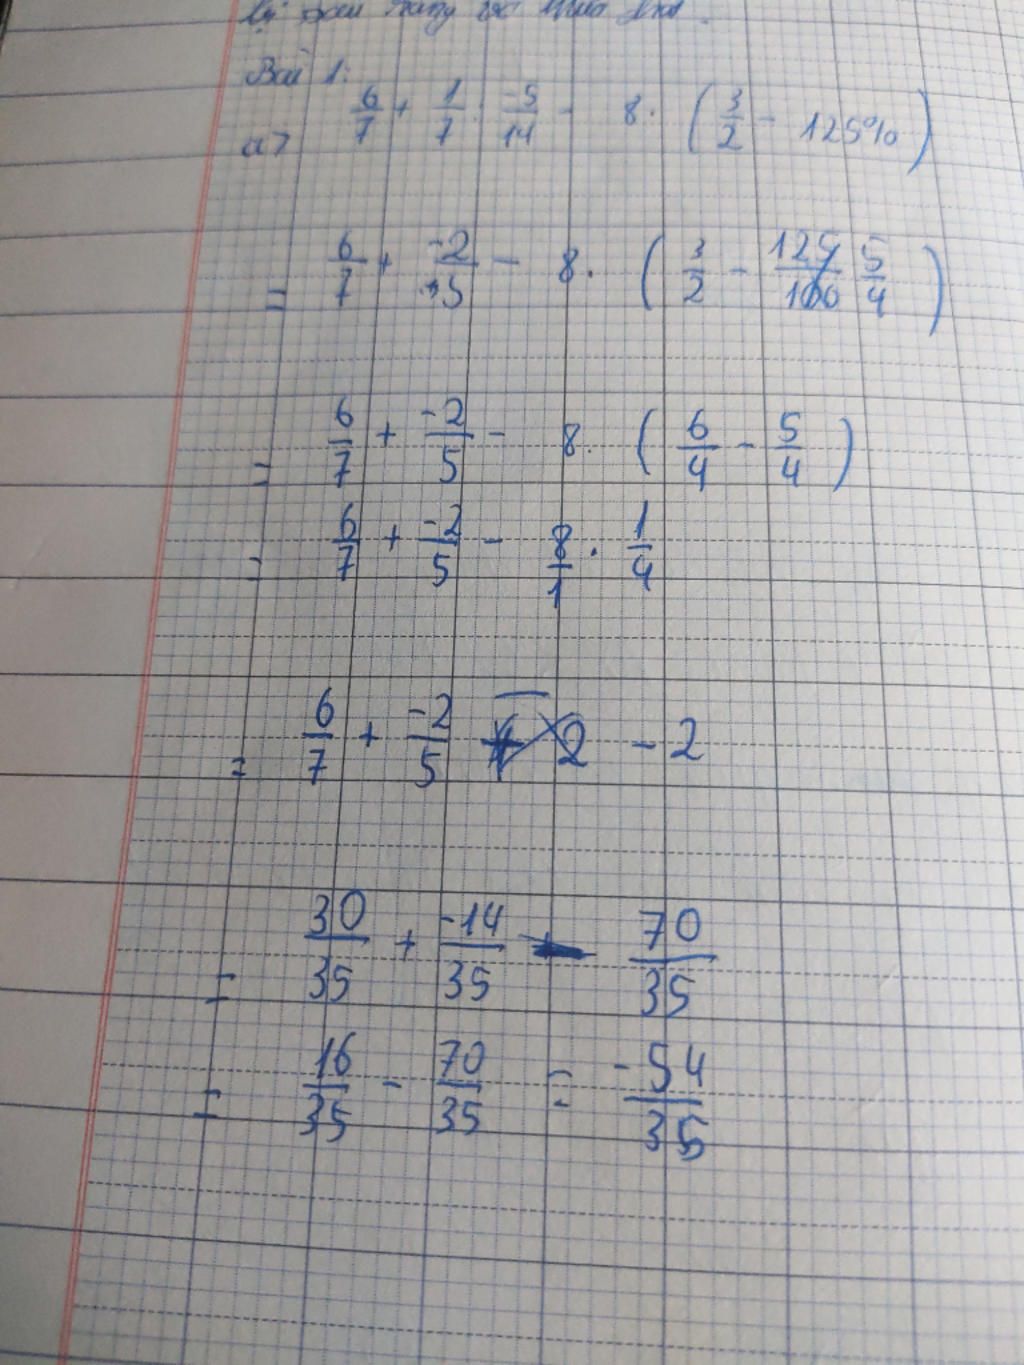 Bài 1:
a> 6/7 + 1/7 : -5/14 - 8. (3/2 - 125%)
= 6/7 + -2/5 - 8. (3/2 - 125/100 5/4)
= 6/7 + -2/5 - 8. (6/4 - 5/4)
= 6/7 + -2/5 - 8/1 . 1/4
= 6/7 + -2/5 2 - 2
= 30/35 + -14/35 - 70/35
= 16/35 - 70/35 = -54/35